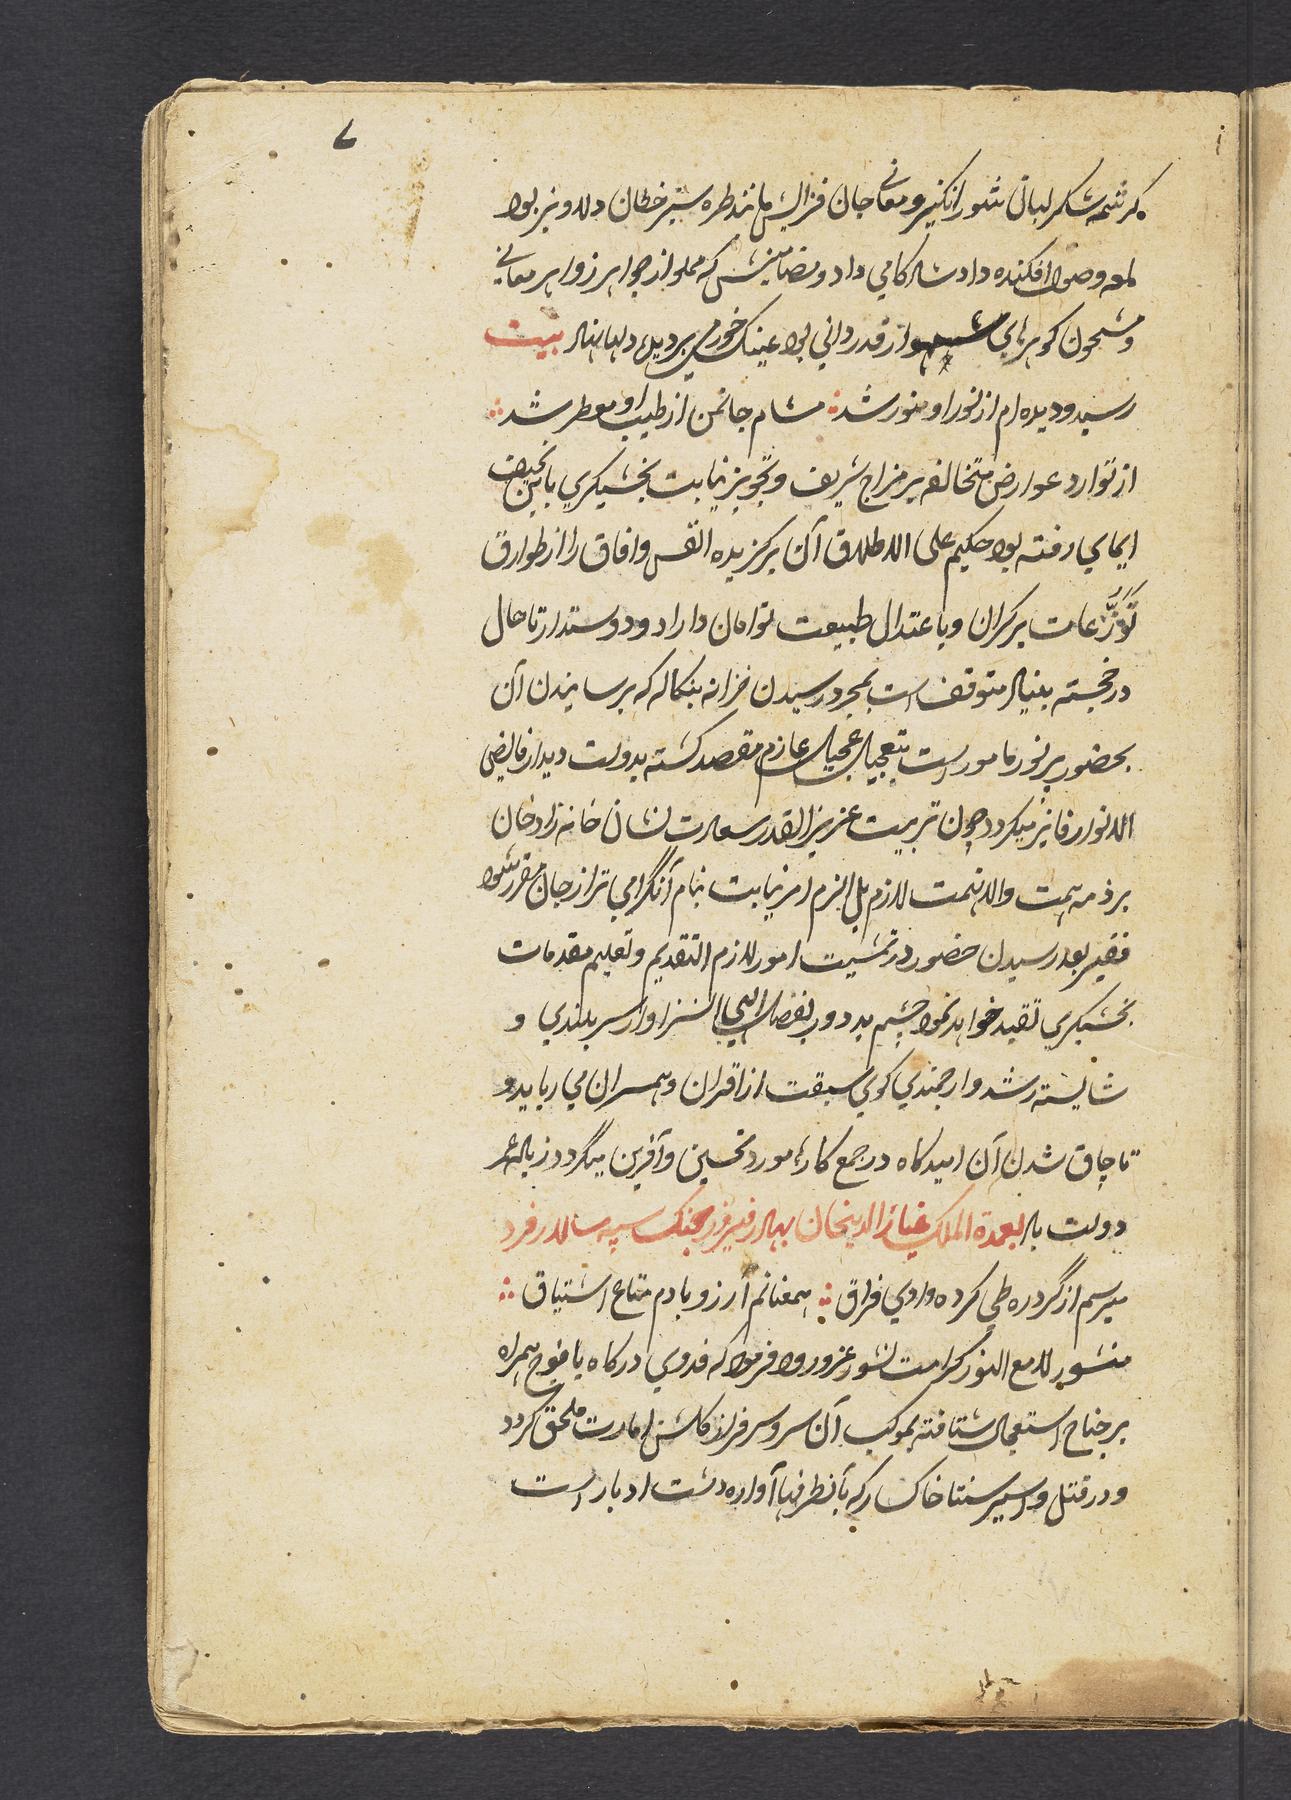 کرشمه شکر لبان شور انگیز و معانی جان فزایش مانند طره سبز خطان دلاویز بود
لمعه وصول افکنده داد شادکامی داد و مضامینش که مملو از جواهر زواهر معانی
و مشحون کوهرهای شهوار قدردانی بود عینک خورمی بر دیده دلها نهاد بیت
رسید و دیده ام از نور او منور شد مشام جانمن از طیب او معطر شد
از توارد عوارض متخالفه بر مزاج شریف و تجویز نیابت بخشیکری باین نحیف
ایمای رفته بود حکیم علی الاطلاق آن برکزیده انفس و افاق را از طوارق
توزعات برکران و باعتدال طبیعت توامان داراد و دوستدار تا حال
در خجسته بنیاد متوقف است بمجرد رسیدن خزانه بنکاله که برسانیدن آن
بحضور پرنور مامور است بتعجیل عجیل عازم مقصد کشته بدولت دیدار فایض
الانوار فایز میکردد چون تربیت عزیز القدر سعادت نشان خانه زاد خان
بر ذمه همت والا نهمت لازم بل الزم امر نیابت بنام آنگرامی تر از جان مقرر شود
فقیر بعد رسیدن حضور در تمشیت امور لازم التقدیم و تعلیم مقدمات
بخشیکری تقید خواهد نمود چشم بد دور بفضل الهی السزاوار سربلندی و
شایسته رشد و ارجمندی کوی سبقت از اقران و همسران می رباید و
تا چاق شدن آن امیدکاه در جمع کارها مورد تحسین و آفرین میگردد زیاده عمر
دولت باد بعمدة الملک غیاز الدینخان بهادر فیروز جنک سپه سالار فرد
میرسم از گرد ره طی کرده وادی فراق همعنانم آرزو بادم متاع اشتیاق
منشور لامع النور کرامت نشور عز ورود فرمود که فدوی درکاه با فوج همراه
بر جناح استعجال شتافته بموکب آن سرو سرفراز کلشن امارت ملحق کردد
و در قتل و اسیر سنتا خاکسار که بآنطرفها آواره دشت ادبار است